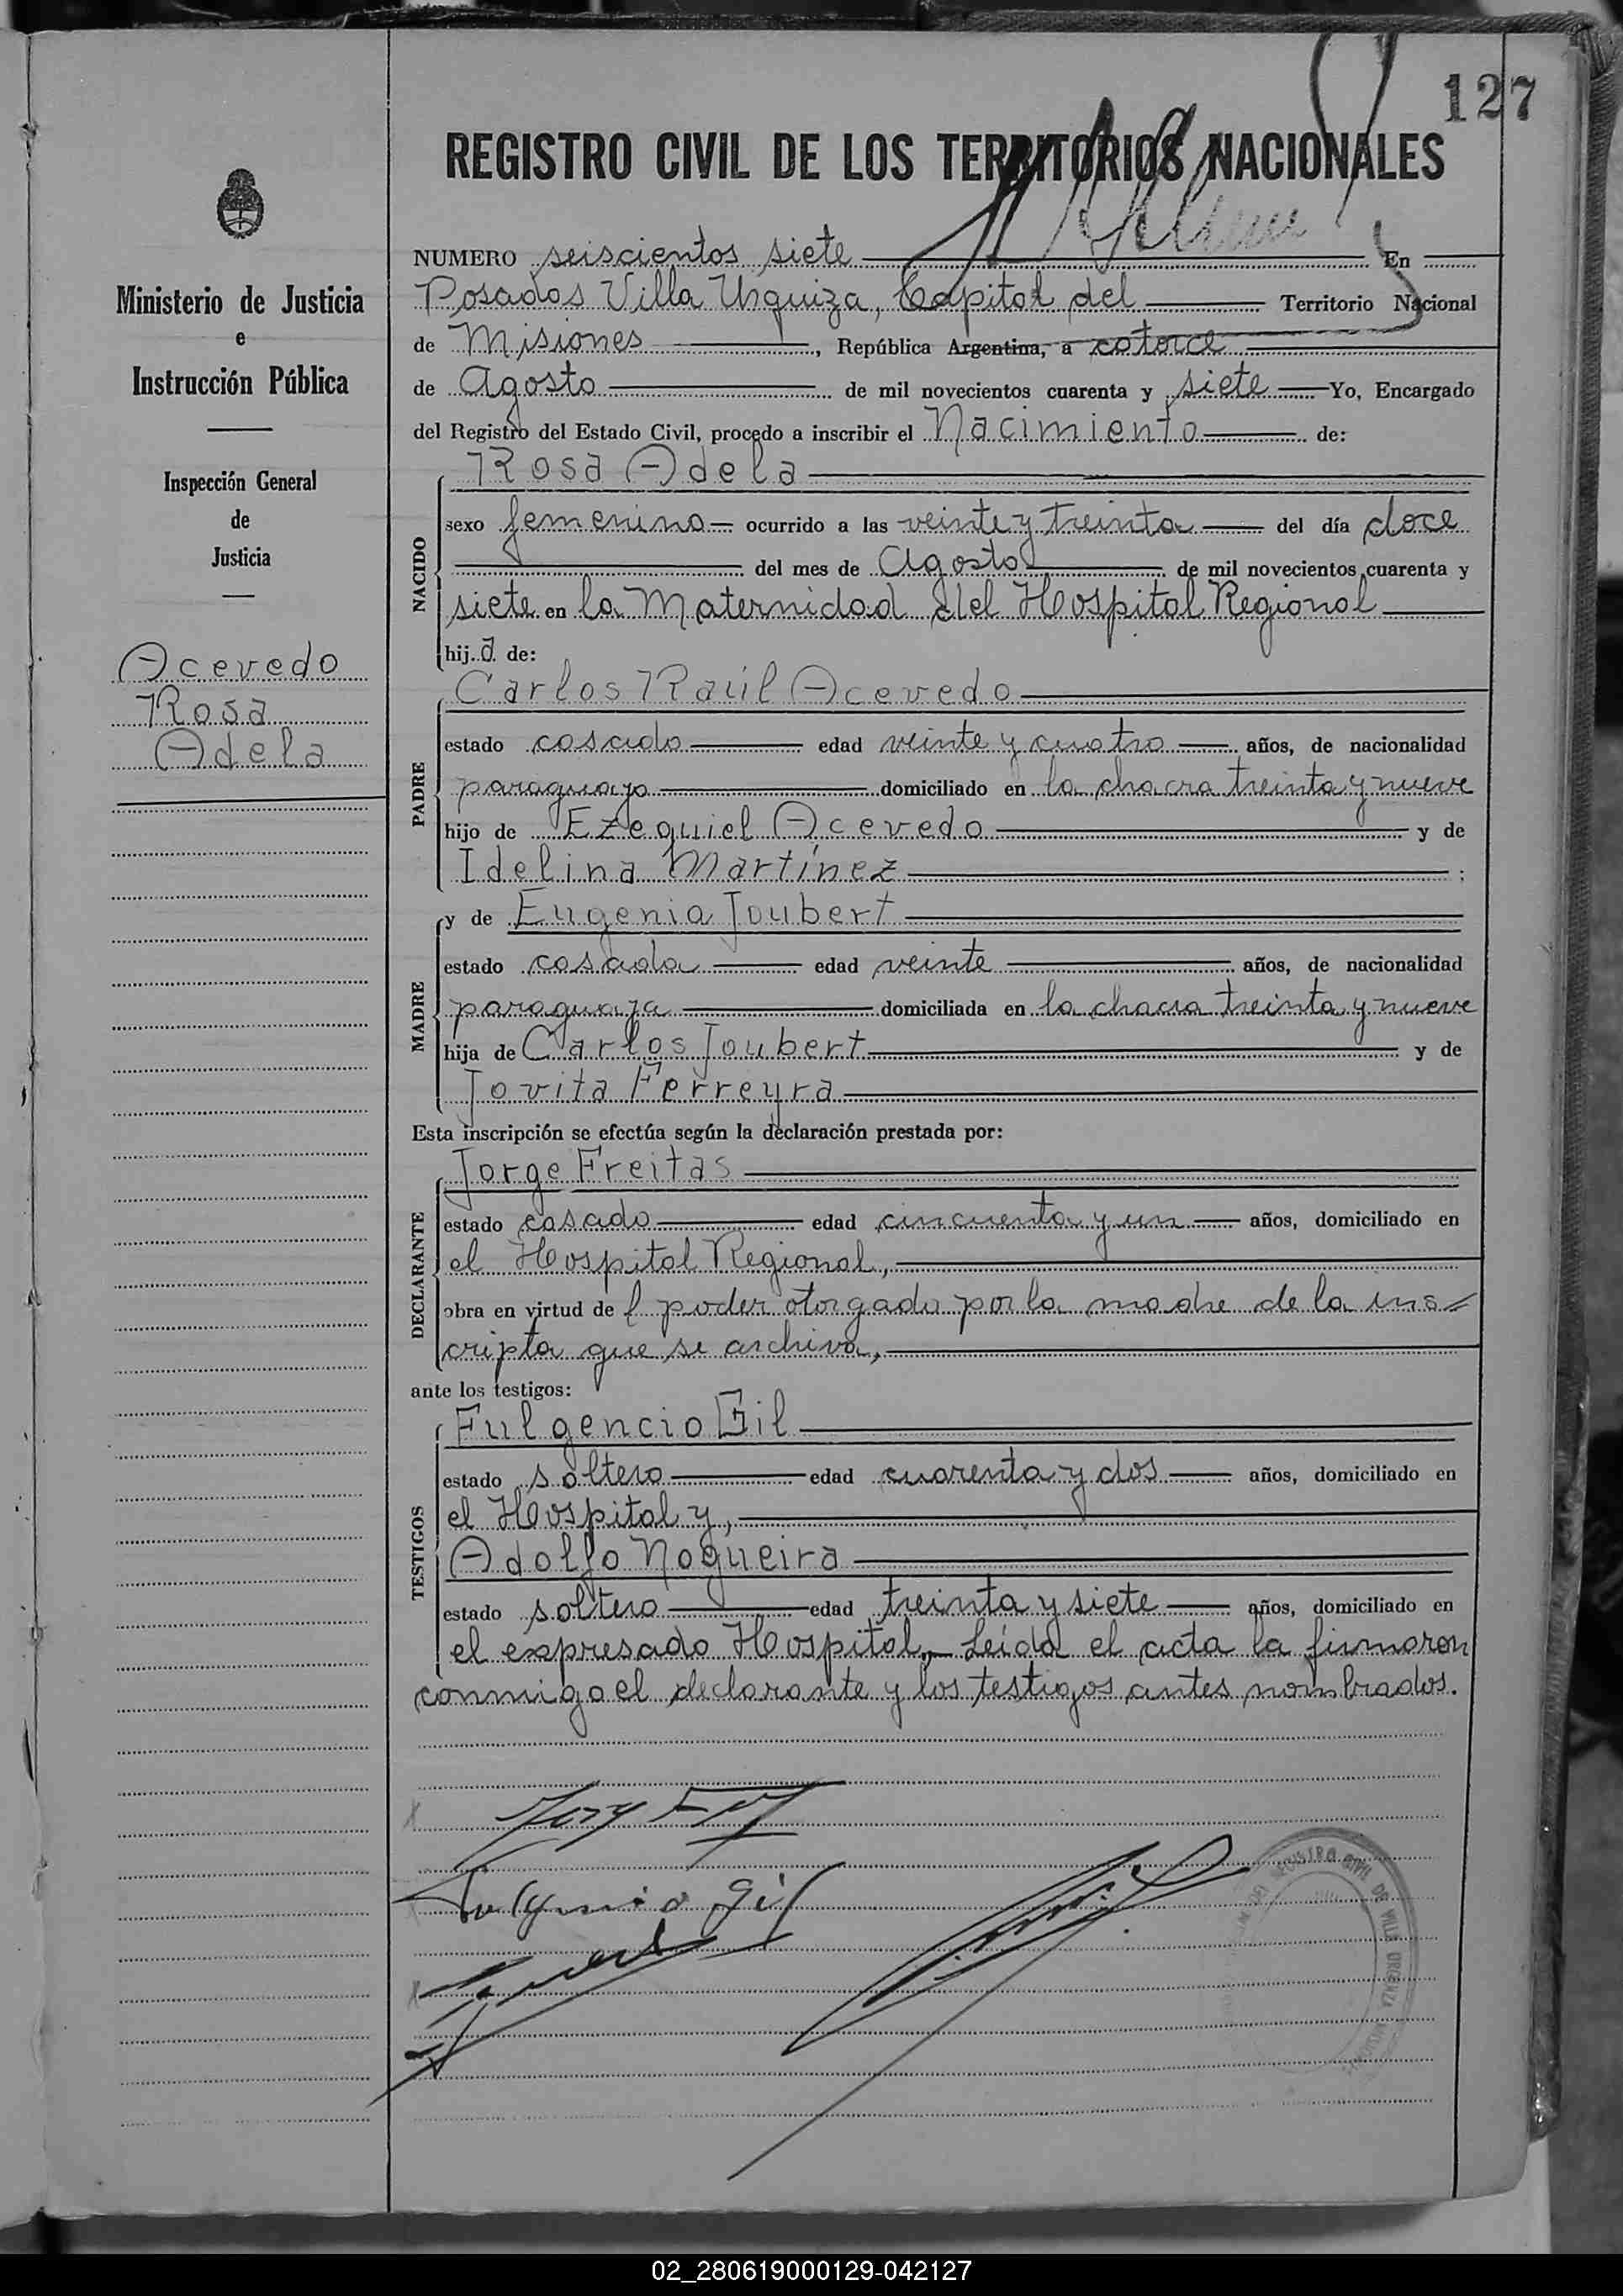 127
REGISTRO CIVIL DE LOS TERRITORIOS NACIONALES
Ministerio de Justicia
e
Instrucción Pública
Inspección General
de
Justicia
Acevedo
Rosa
Adela
NUMERO seiscientos siete En
Posadas Villa Urquiza, Capital del Territorio Nacional
de Misiones, República Argentina, a catorce
de Agosto de mil novecientos cuarenta y siete Yo, Encargado
del Registro del Estado Civil, procedo a inscribir el Nacimiento de:
NACIDO
Rosa Adela
sexo femenino ocurrido a las veinte y treinta del día doce
del mes de Agosto de mil novecientos cuarenta y
siete en la Maternidad del Hospital Regional
hija de:
PADRE
Carlos Raúl Acevedo
estado casado edad veinte y cuatro años, de nacionalidad
paraguayo domiciliado en la chacra treinta y nueve
hijo de Ezequiel Acevedo y de
Idelina Martínez;
MADRE
y de Eugenia Joubert
estado casada edad veinte años, de nacionalidad
paraguaya domiciliada en la chacra treinta y nueve
hija de Carlos Joubert y de
Jovita Ferreyra
Esta inscripción se efectúa según la declaración prestada por:
DECLARANTE
Jorge Freitas
estado casado edad cincuenta y un años, domiciliado en
el Hospital Regional,
obra en virtud de l poder otorgado por la madre de la ins=
cripta que se archiva,
ante los testigos:
TESTIGOS
Fulgencio Gil
estado soltero edad cuarenta y dos años, domiciliado en
el Hospital y,
Adolfo Nogueira
estado soltero edad treinta y siete años, domiciliado en
el expresado Hospital. Leída el acta la firmaron
conmigo el declarante y los testigos antes nombrados.
Fulgencio Gil
REGISTRO CIVIL DE VILLA URQUIZA
02_280619000129-042127